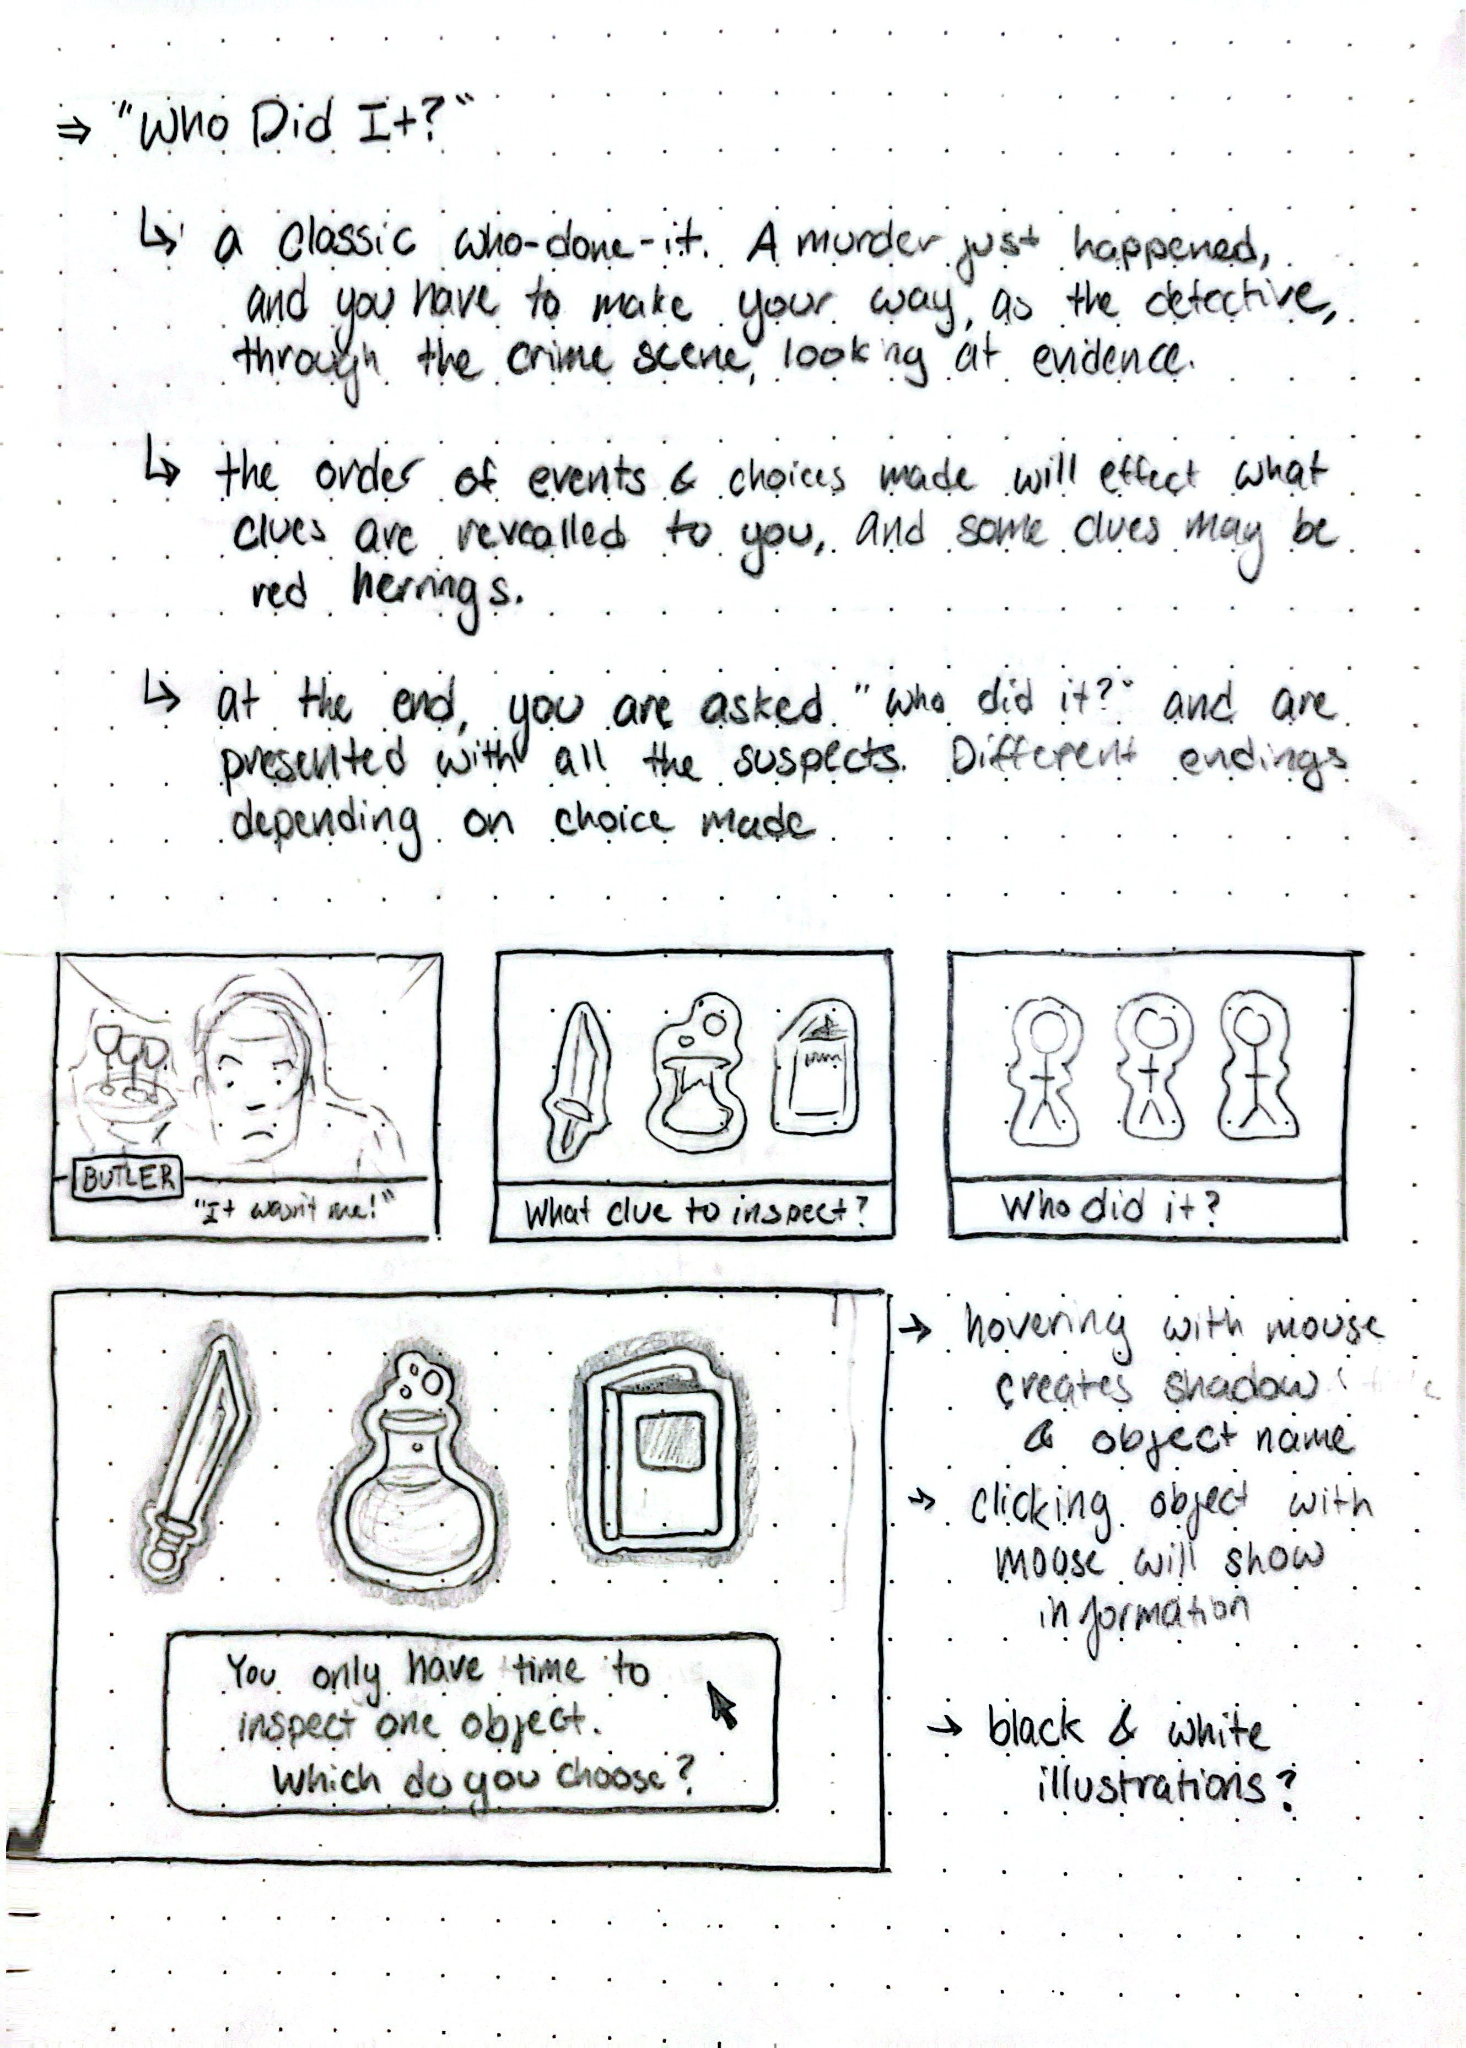 ⇒ "Who Did It?"
↳ a classic who-done-it. A murder just happened,
and you have to make your way, as the detective,
through the crime scene, looking at evidence.
↳ the order of events & choices made will effect what
clues are revealled to you, and some clues may be
red herrings.
↳ at the end, you are asked "who did it?" and are
presented with all the suspects. Different endings
depending on choice made
BUTLER
"It wasn't me!"
What clue to inspect?
Who did it?
→ hovering with mouse
creates shadow
& object name
→ clicking object with
mouse will show
information
You only have time to
inspect one object.
Which do you choose?
→ black & white
illustrations?